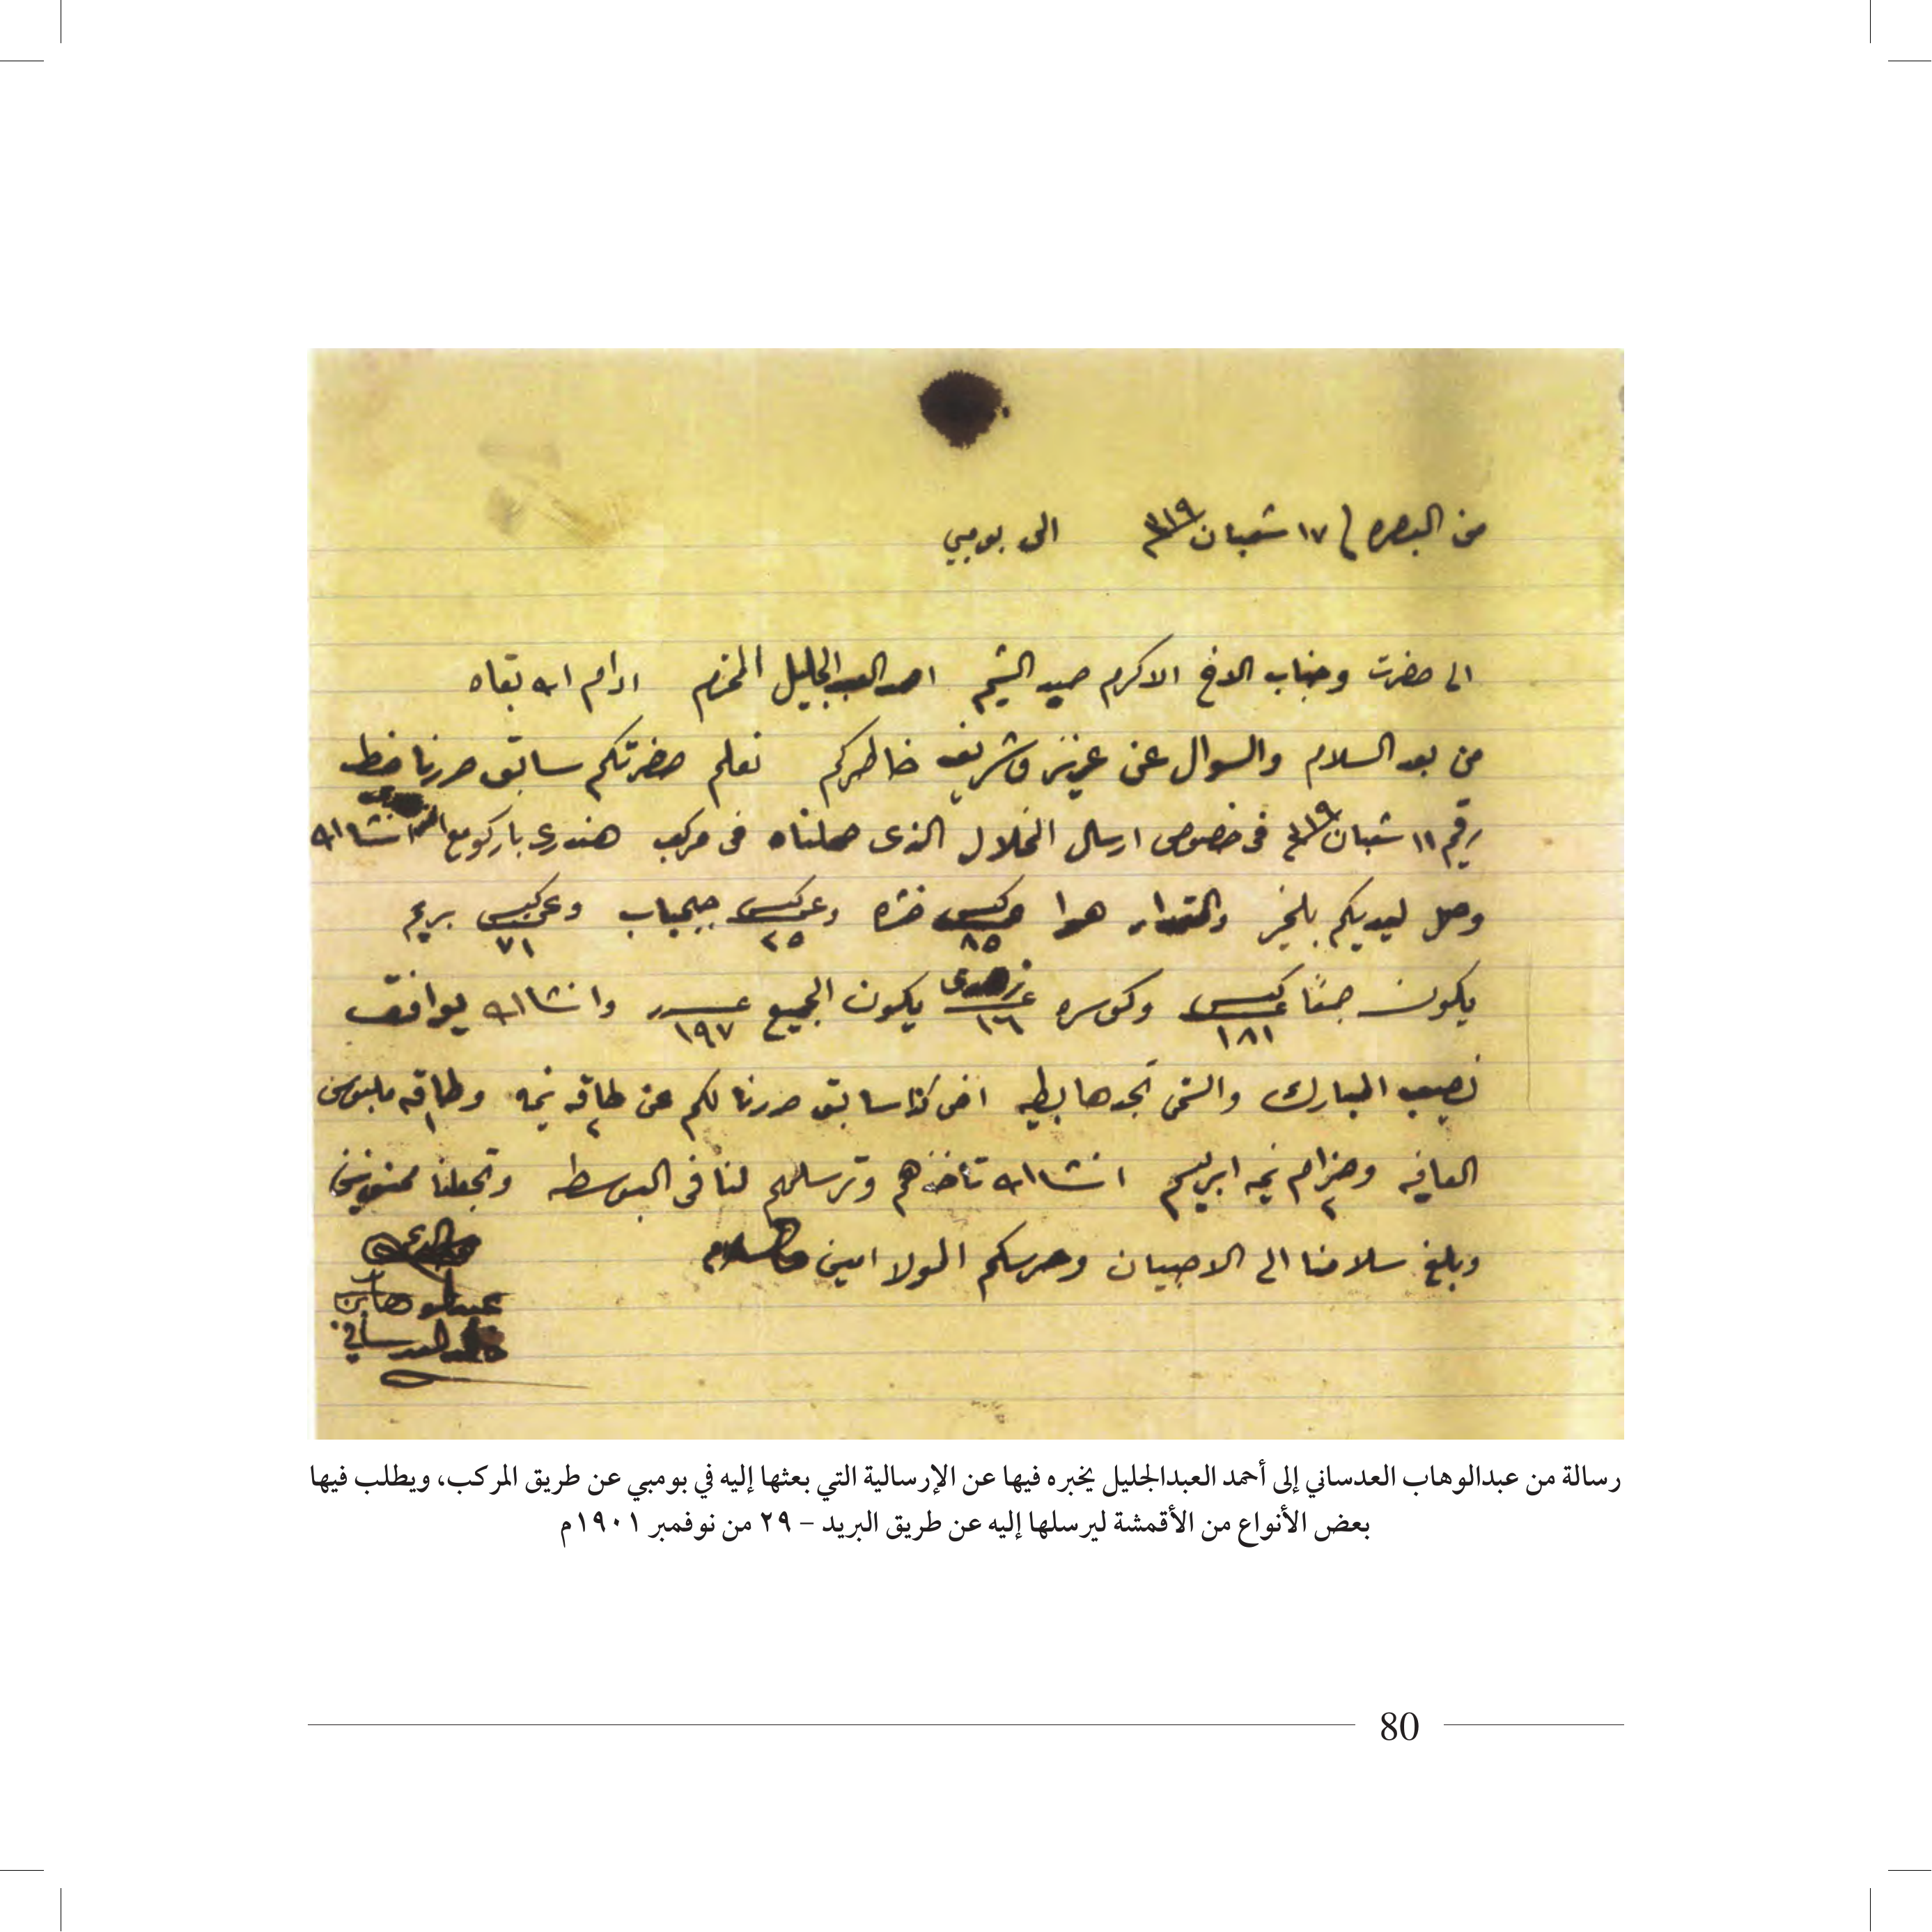 من البصره / ١٧ شعبان ٣١٩ الى بومبي
الى حضرت وجناب الاخ الاكرم حميد الشيم احمد العبدالجليل المحترم ادام الله بقاه
من بعد السلام والسوال عن عزيز وشريف خاطركم نعلم حضرتكم سابق حررنا خط
رقم ١١ شعبان ٣١٩ في خصوص ارسال الخلال الذى حملناه في مركب انشاالله
وصل ليديكم بلخير والمقدار هوا كيس ٨٥ خشره وعن كيس ٢٥ جبجباب وعن كيس ٧١ بريم
يكون جمعًا عن كيس ١٨١ وكوسره ١٦ يكون الجميع عدد ١٩٧ وانشاالله يوافق
نصيب المبارك تجدها بطيه اخى كذا سابق حررنا لكم عن طاقه ٢ نيمه وطاقه ١ ملبوس
العافيه وحزام ٢ نيمه ابريسم انشاالله تاخذهم وترسلهم لنا في البوسطه وتجعلنا ممنونين
وبلغ سلامنا الى وحرسكم المولا امين والسلام
عبدالوهاب بن
العدساني
رسالة من عبدالوهاب العدساني إلى أحمد العبدالجليل يخبره فيها عن الإرسالية التي بعثها إليه في بومبي عن طريق المركب، ويطلب فيها
بعض الأنواع من الأقمشة ليرسلها إليه عن طريق البريد – ٢٩ من نوفمبر ١٩٠١م
80